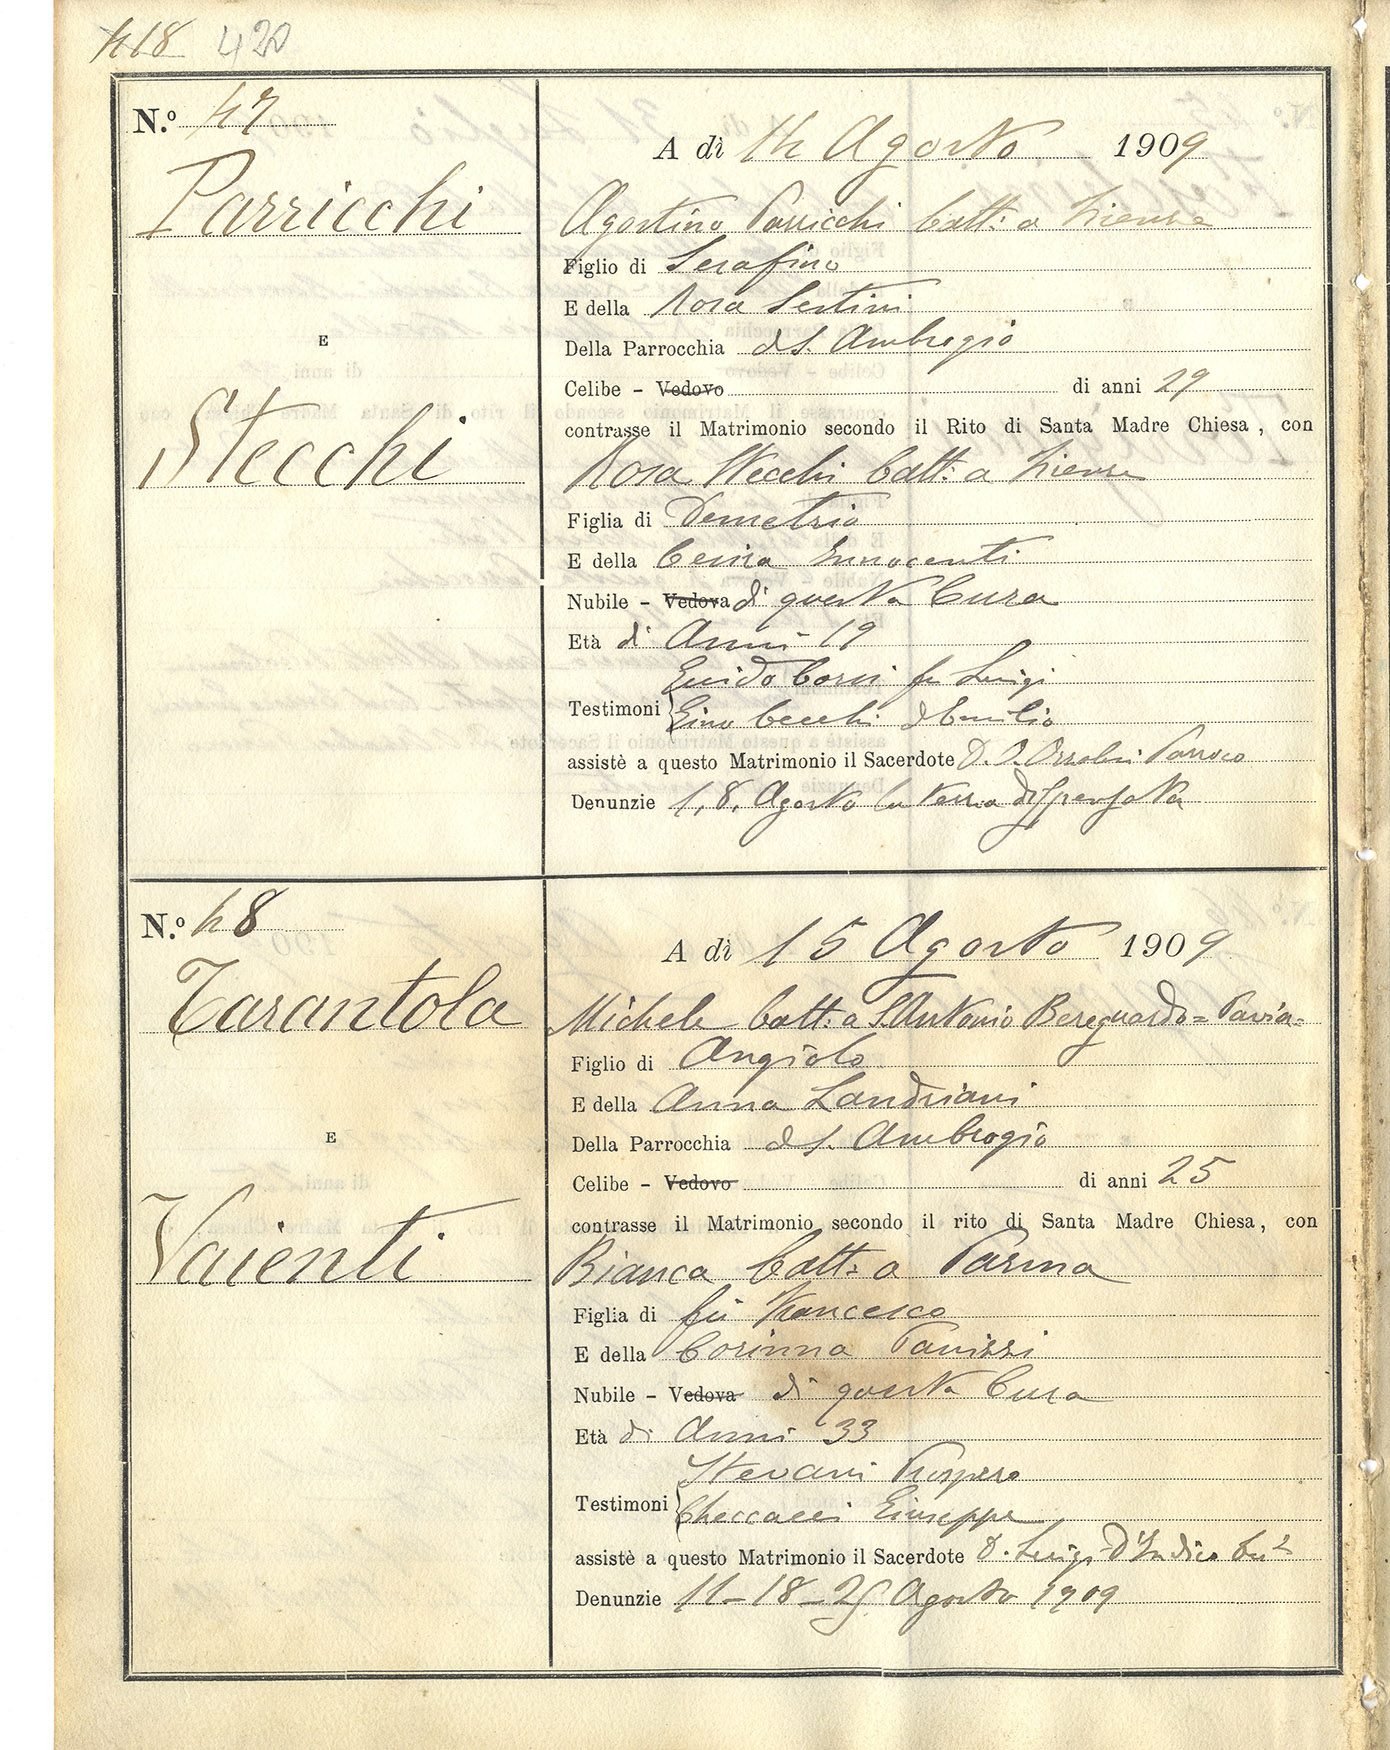 418 420
N.º 47
Parricchi
E
Stecchi
A dì 14 Agosto 1909
Agostino Parricchi batt: a Firenze
Figlio di Serafino
E della Rosa Sestini
Della Parrocchia di S. Ambrogio
Celibe – Vedovo di anni 29
contrasse il Matrimonio secondo il Rito di Santa Madre Chiesa, con
Rosa Stecchi batt: a Firenze
Figlia di Demetrio
E della Cesira Innocenti
Nubile – Vedova di questa Cura
Età di Anni 19
Guido Corsi fu Luigi
Testimoni Gino Cecchi d'Emilio
assistè a questo Matrimonio il Sacerdote D. Parroco
Denunzie 1, 8, Agosto la terza dispensata
N.º 48
Tarantola
E
Vaienti
A dì 15 Agosto 1909
Michele batt: a S. Antonio Bereguardo = Pavia =
Figlio di Angiolo
E della Anna Landriani
Della Parrocchia di S. Ambrogio
Celibe – Vedovo di anni 25
contrasse il Matrimonio secondo il rito di Santa Madre Chiesa, con
Bianca batt: a Parma
Figlia di fu Francesco
E della Corinna Panizzi
Nubile – Vedova di questa Cura
Età di Anni 33
Stevani Prospero
Testimoni Checcacci Giuseppe
assistè a questo Matrimonio il Sacerdote D. Luigi D'Indico
Denunzie 11 – 18 – 25 Agosto 1909